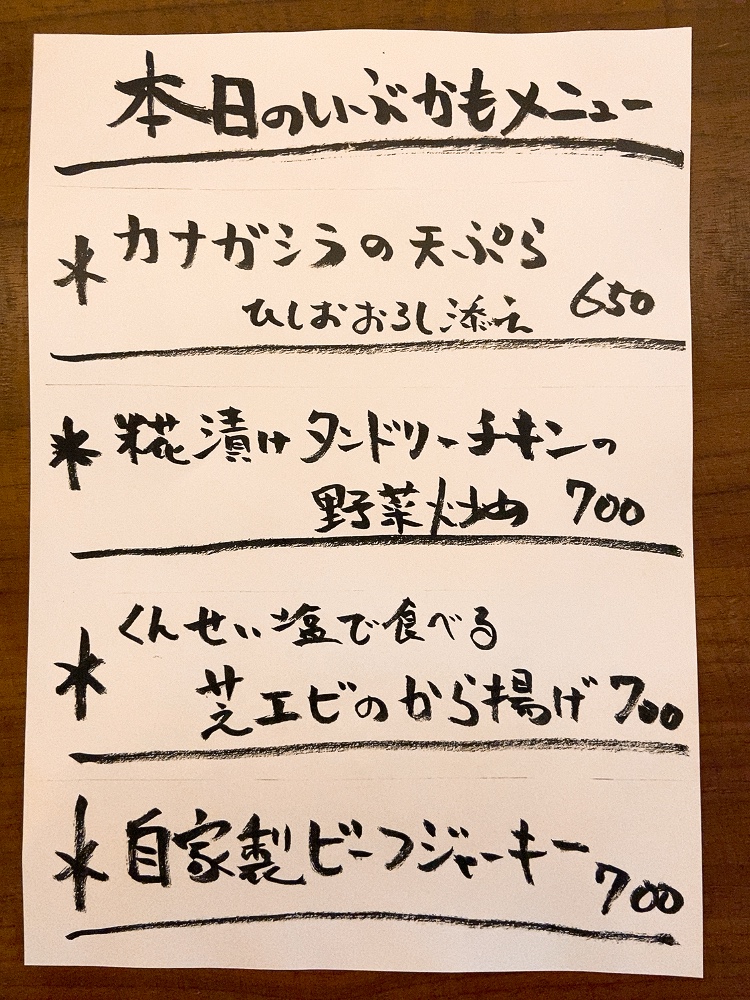 本日のいぶかもメニュー
* カナガシラの天ぷら
ひしおおろし添え 650
* 糀漬けタンドリーチキンの
野菜炒め 700
* くんせい塩で食べる
芝エビのから揚げ 700
* 自家製ビーフジャーキー 700